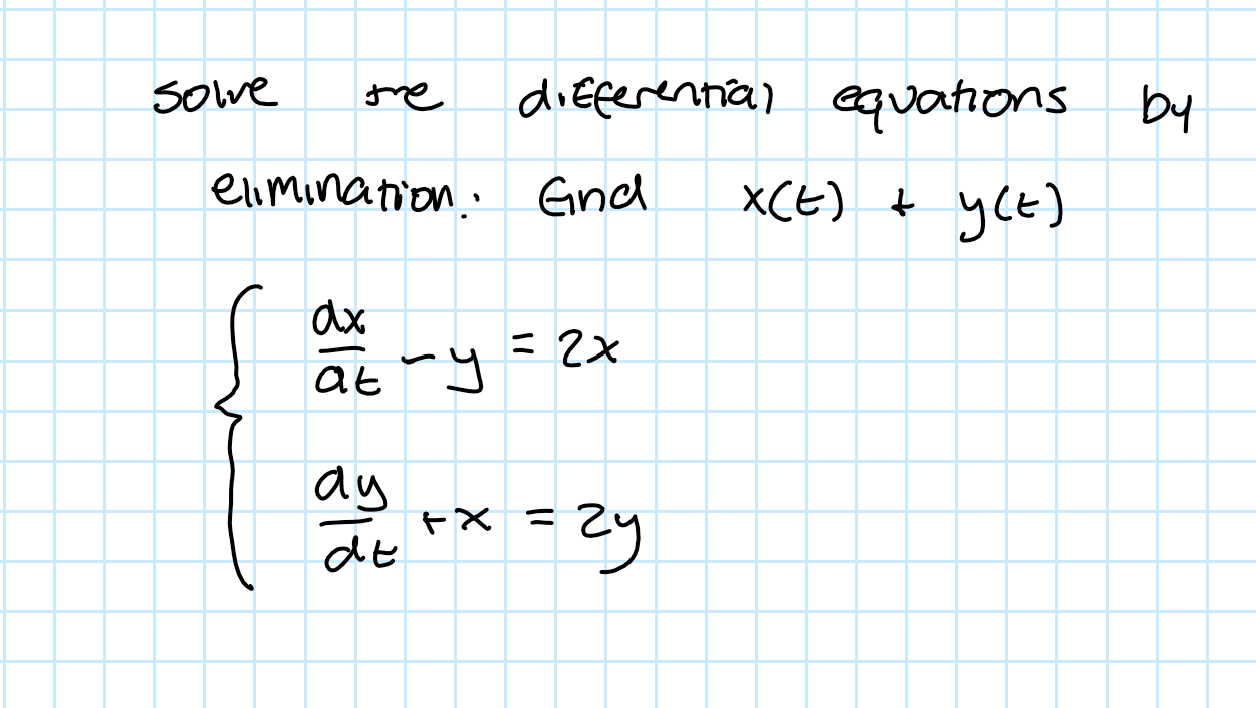 solve the differential equations by
elimination. Find x(t) + y(t)
dx/dt - y = 2x
dy/dt + x = 2y